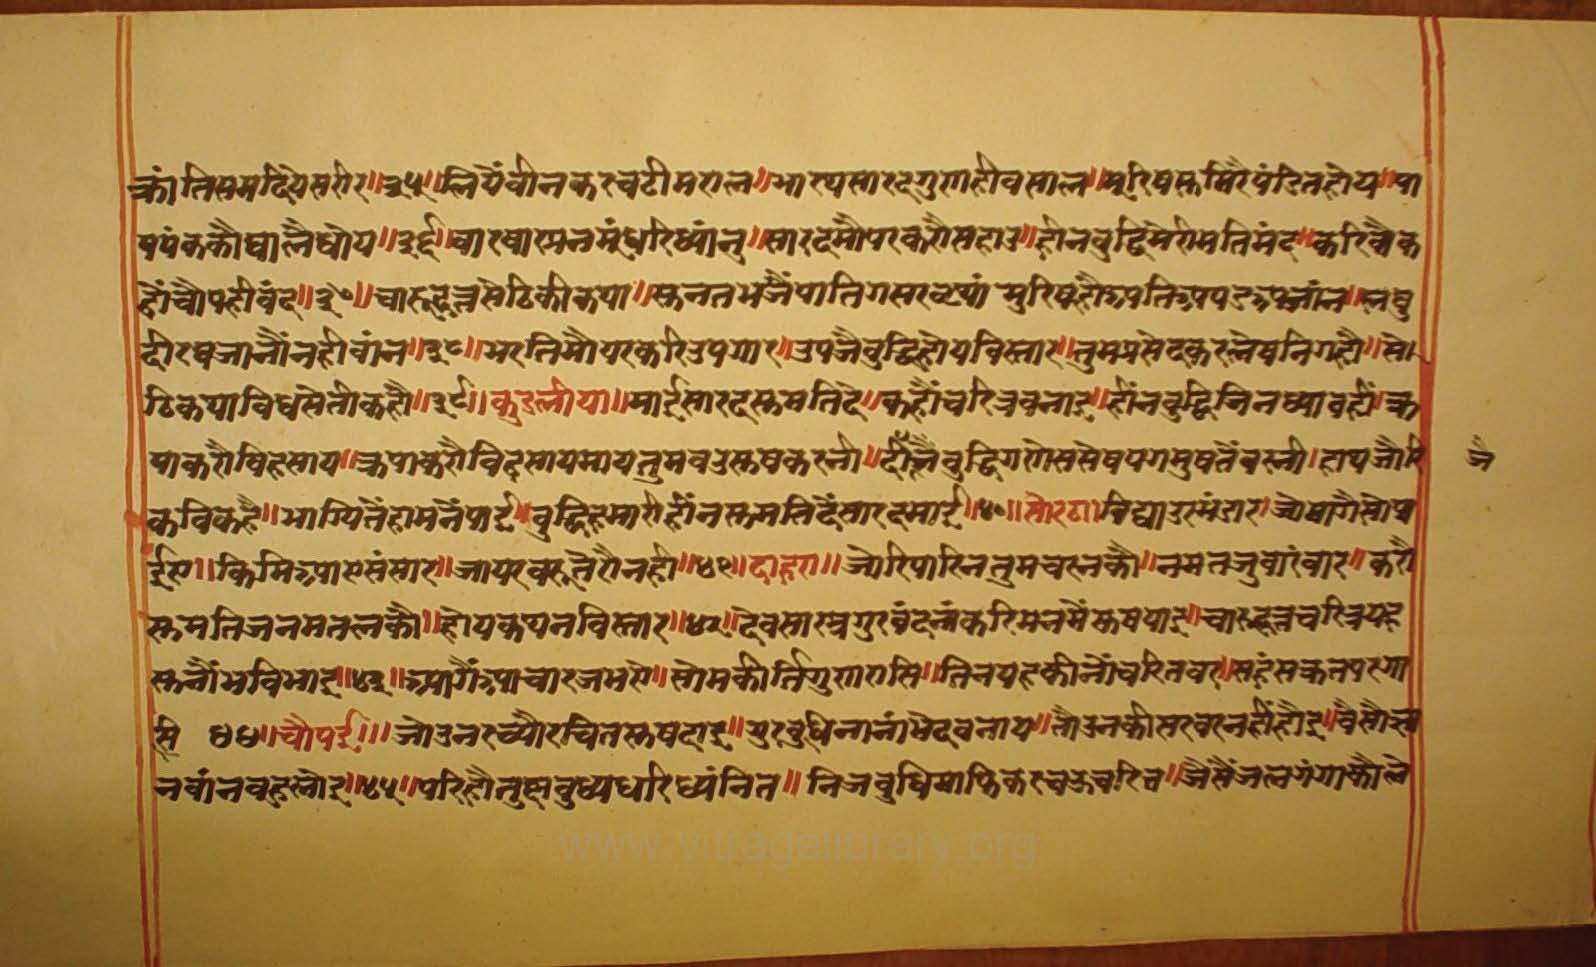 क्रांतिसमदिपैसरीर॥३५॥लियैंवीनकरचटीमराल॥भारत्यसारदगुराहीवसाल॥मूरिषस्तमिरैपंडितहोय॥पा
पपंककौघालैधोय॥३६॥वारवारमनमंधरिध्यांनु॥सारदमौपरकरौसहाउ॥हीनबुद्धिमेरीमतिमंद॥करिवैक
हौंचौपहीवंद॥३७॥चारूदत्तसेठिकीकथा॥सुनतभजैंपातिगसरव्यथा मुरिषहौअपतिअपपडअग्नांन॥लघु
दीरघजानौंनहीवांन॥३८॥भरतिमौपरकरिउपगार॥उपजैबुद्धिहोयविस्तार॥तुमप्रसेदकरलेषनिगहौ॥से
ठिकथाविधसेतीकहौ॥३९॥कुडलीया॥माईसारदसुमतिदे॥कहौंचरित्रवनाइ॥हींनबुद्धिनितध्यावहीं॥क्र
पाकरौविहसाय॥क्रपाकरौविहसायमायतुमवउसुषकरनी॥दीजैबुद्धिगरोससेषपगमुषतैंवरनी।हाथजौरि
कविकहै॥भागियतैंहामनैंपाई॥बुद्धिहमारीहींनसुमतिदैंसारदमाई॥४०॥सोरठा।विद्याउरमंडार।ज्योषागैसोपा
ईए॥किमिअपारसंसार॥जायरवरूतेरौनही॥४१॥दाहरा॥ज्योरिपारिनतुमचरनकौ॥नमतजुवारंवार॥करौ
सुमतिजनमतलकौ॥होयकथनविस्तार॥४२॥देवसास्त्रगुरवंदनांकरिमनमैंसुषपाइ॥चारूदत्तचरित्रयह
सुनौंभविभाइ॥४३॥अगौंअचारजभसे॥सोमकीर्तिगुरारासि॥तिनयहकीनोंचरितवर॥सहंसक्रतपरगा
सि ४४॥चौपई॥।जोउनरच्यौरचितसुषदाइ॥युरबुधिनानांभेदवनाय॥तौउनकीसरवरनहींहौइ॥वैसौज्ञा
नवांनवहुलोइ॥४५॥परिहौतुछबुध्यधरिध्यंनित॥ निजबुधिमाफिकरचऊचरित्र॥जैसैंजलगंगाकौले
जै
www.vitragelibrary.org